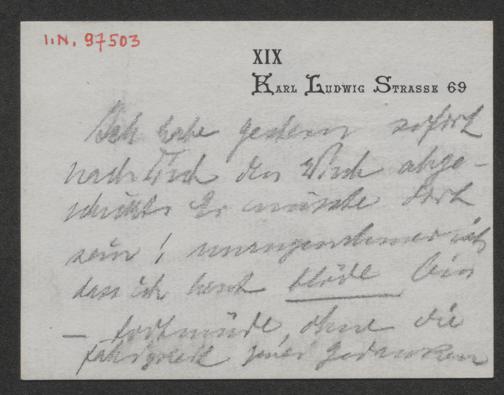 I.N. 97503
XIX
Karl Ludwig Strasse 69
Ich habe gestern sofort
nach Tisch das Buch abge-
schickt. Er müsste dort
sein! unangenehmer ist,
dass ich heut blöde bin
— todtmüde, ohne die
Fähigkeit jeden Gedanken